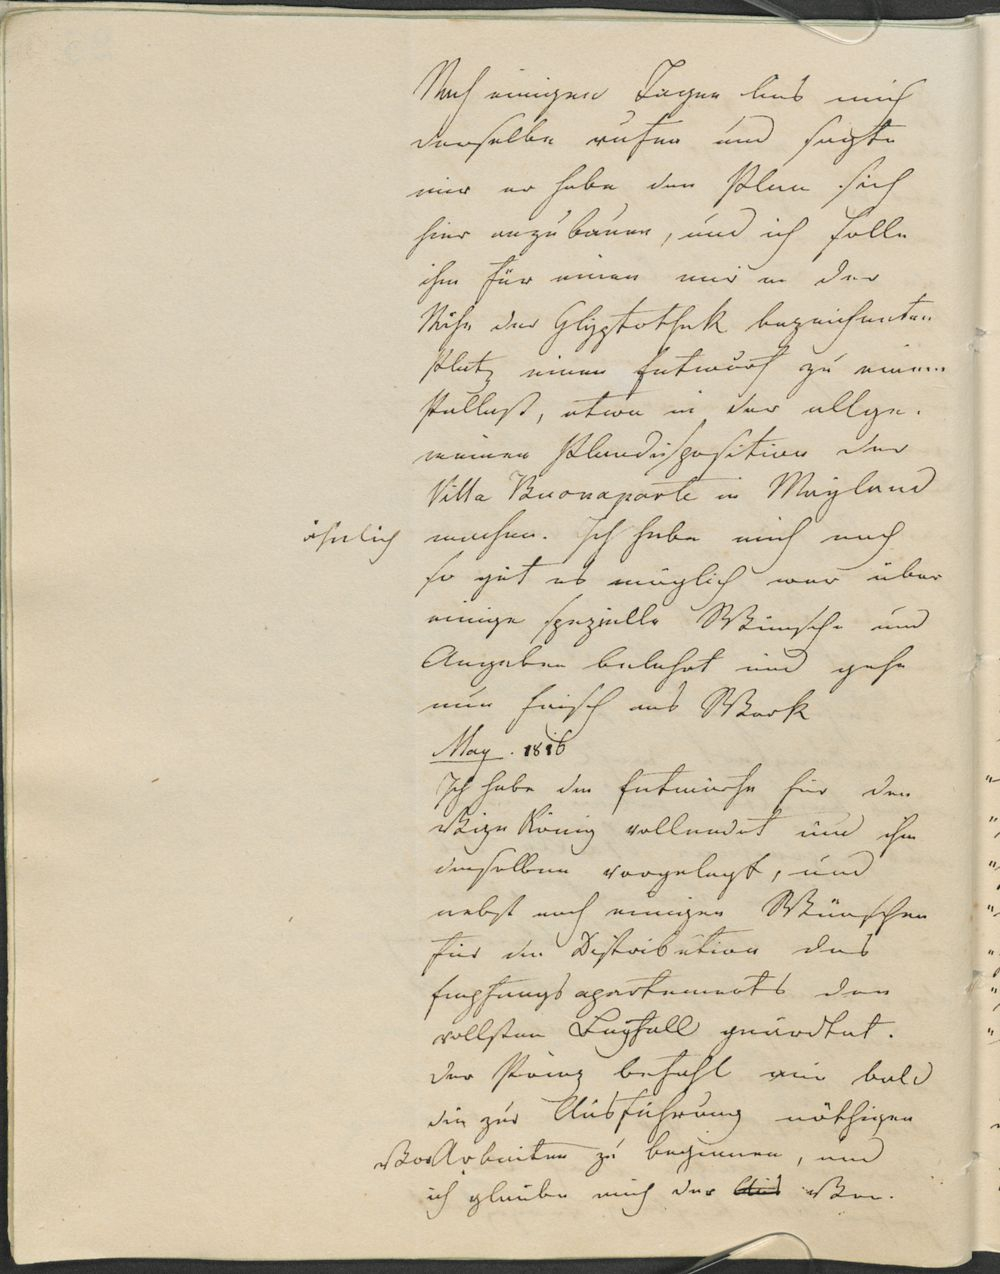 Nach einigen Tagen lies mich
derselbe rufen und sagte
mir er habe den Plan sich
hier anzubauen, und ich solle
ihm für einen mir in der
Nähe der Glyptothek bezeichneten
Platz einen Entwurf zu einem
Pallast, etwa in der allge-
meinen Plandisposition der
Villa Buonaparte in Mayland
ähnlich machen. Ich habe mich nach
so gut es möglich war über
einige spezielle Wünsche und
Angaben belehrt und gehe
nun frisch ans Werk
May. 1816
Ich habe die Entwürfe für den
Vize König vollendet und ihm
dieselben vorgelegt, und
nebst noch einigen Wünschen
für die Distribution des
Empfangsapartements den
vollsten Beyfall geärdtet.
Der Prinz befahl mir bald
die zur Ausführung nöthigen
VorArbeiten zu beginnen, und
ich glaube mich der Vor-